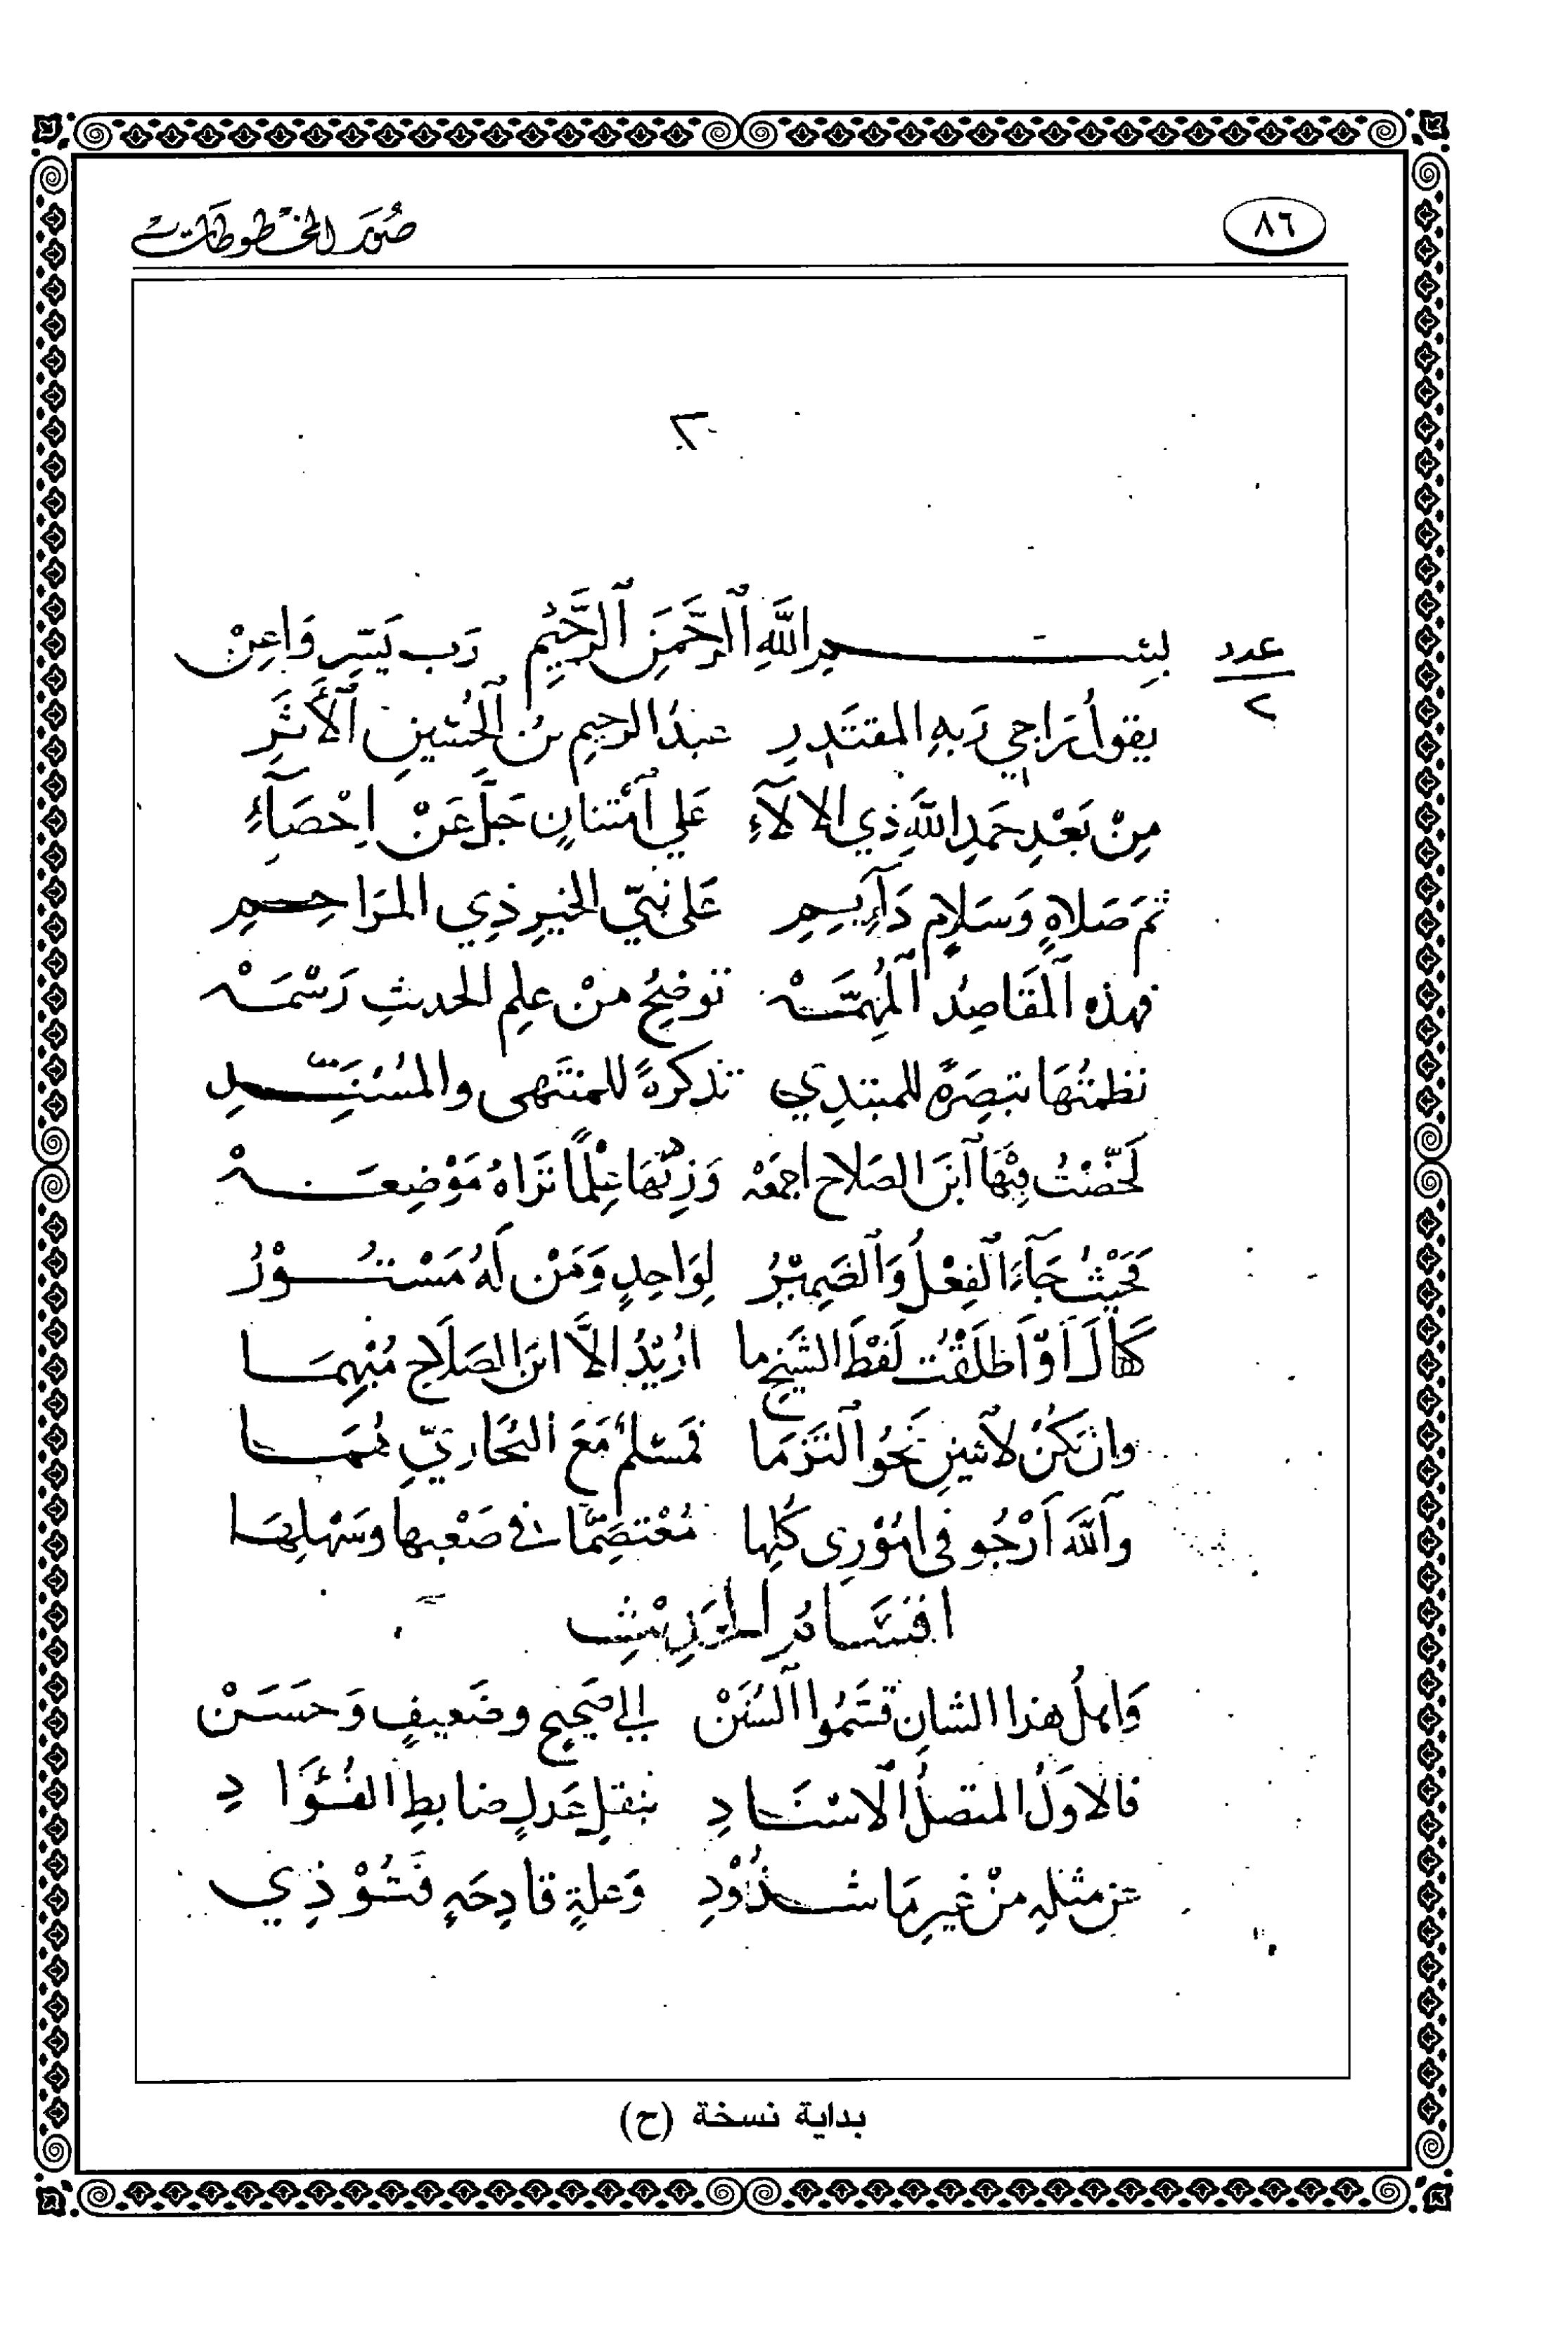 ٨٦ صور المخطوطات
٢
عدد
٢
بِسْمِ اللَّهِ ٱلرَّحْمَنِ ٱلرَّحِيْمِ رَب يَسِّر وَاعِنْ
يقولُ رَاجِي رَبهِ المقتَدِرِ عبدُ الرحيمِ بنُ ٱلحُسَيْنِ ٱلأَثَرِي
مِنْ بَعْدِ حَمَدِ اللَّهِ ذي الالآءِ عَلي ٱمْتنانٍ جَلَّ عَنْ اِحْصَآءِ
ثمَ صَلاةٍ وَسَلامٍ دَآيِمِ عَلى نبيِّ الخيرِ ذِي المرَاحِمِ
فهذه ٱلمَقَاصِدُ ٱلمُهِمَّهْ توضِيحُ منْ علمِ الحديثِ رَسْمَهْ
نظمتُهَا تبصِرَةً للمبتدِي تذكرةً للمنتَهى والمُسْنِدِ
لَخَّصْتُ فِيْهَا ٱبنَ الصَلاحِ اجمَعْه وَزِدْتُهَا عِلْمًا تَرَاهُ مَوْضِعَهْ
فَحَيْثُ جَآءَ ٱلفِعْلُ وَٱلضَمِيْرُ لِوَاحِدٍ وَمَنْ لَهُ مَسْتُوْرُ
كَقَالَ اَوْ اَطْلَقْتُ لَفْظَ الشَيْخِ ما اُرِيْدُ الاَّ ابنَ الصَلَاحِ مُبْهِمَا
وان تكُنْ لاثنينِ نَحْوُ التَزَمَا فمسْلمٌ مَعَ البُخَارِيِّ هُمَا
وٱللَّهَ اَرْجُو في امُوْرِى كُلِّها مُعْتصِمًا في صَعْبِها وسَهْلِهَا
اقسَامُ الحَدِيْثِ
وَاهلُ هذا الشانِ قسَّمُوا ٱلسُنَنْ إلي صَحِيحٍ وضَعيفٍ وَحسَنْ
فالاوَلُ المتصلُ ٱلاسْنَادِ بنقلِ عَدلٍ ضابطِ الفُؤَادِ
عن مثلهِ منْ غيرِ مَا شُذُوْذِ وَعلةٍ قادِحَهٍ فَتُوْذِي
بداية نسخة (ح)